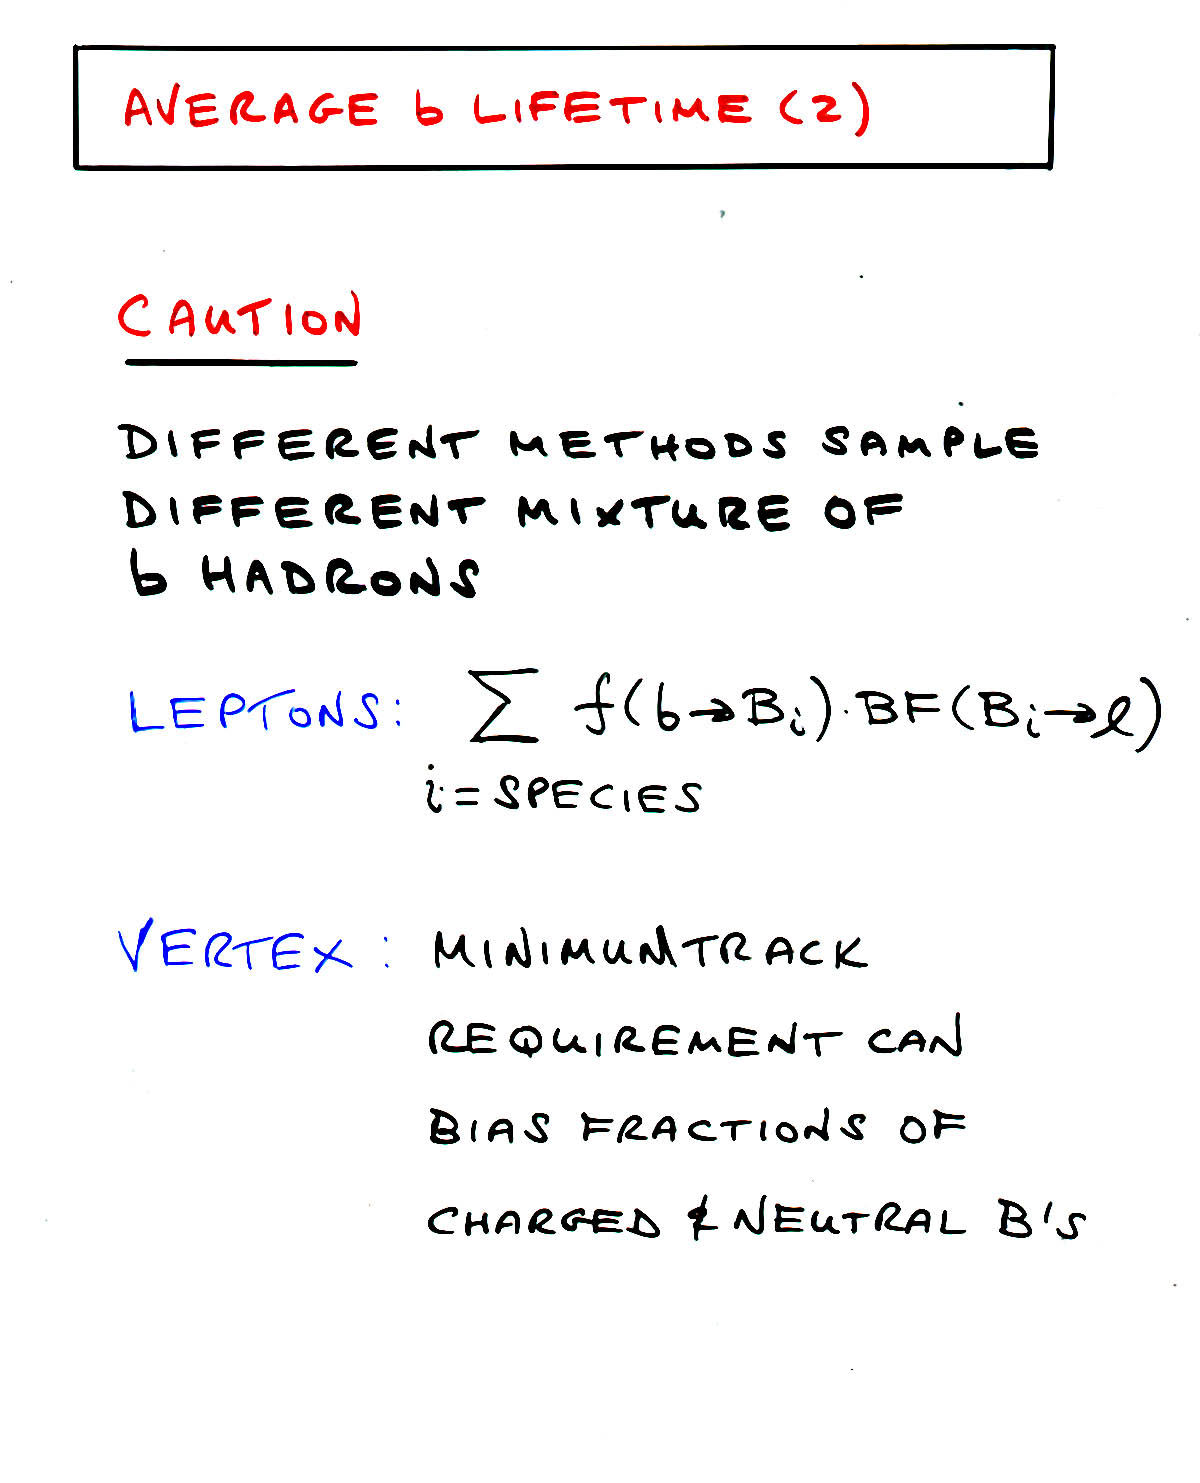 AVERAGE b LIFETIME (2)
CAUTION
DIFFERENT METHODS SAMPLE
DIFFERENT MIXTURE OF
b HADRONS
LEPTONS: ∑ f(b→Bᵢ)·BF(Bᵢ→ℓ)
i = SPECIES
VERTEX: MINIMUM TRACK
REQUIREMENT CAN
BIAS FRACTIONS OF
CHARGED & NEUTRAL B'S